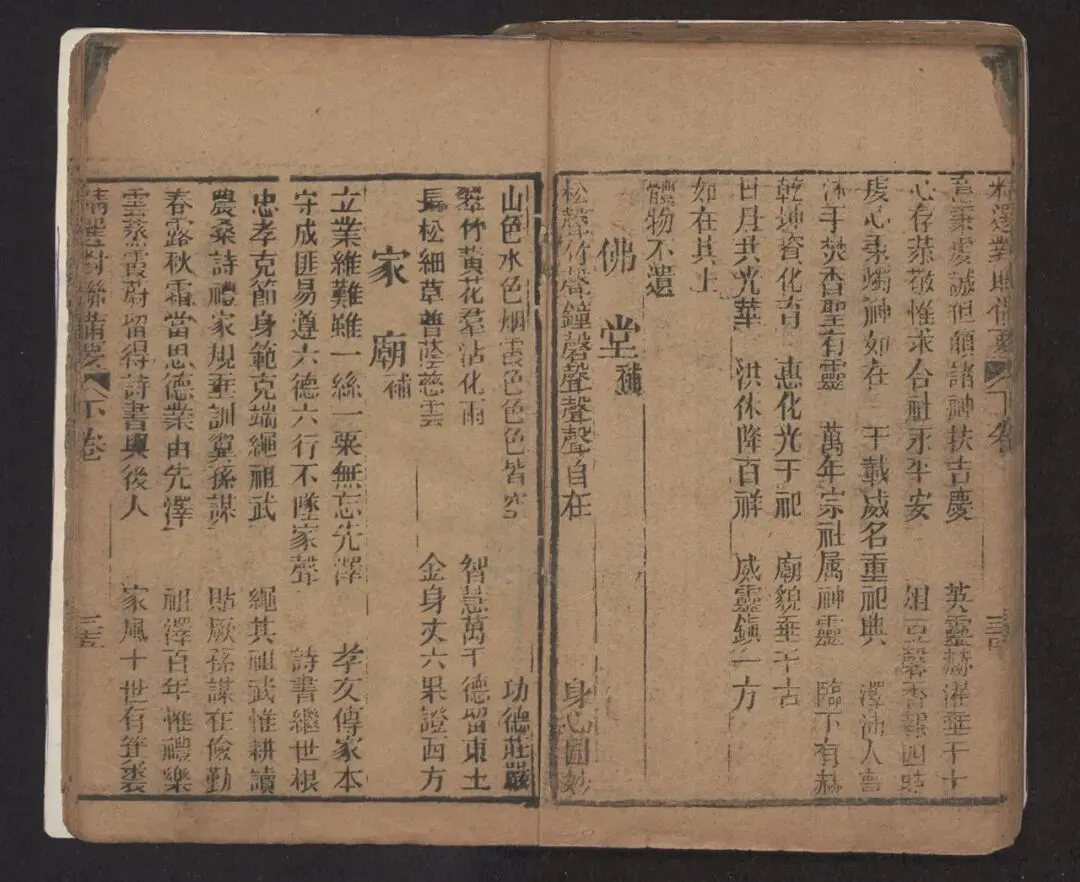 精選對聯備要 下卷 三十四
意秉虔誠但願諸神扶吉慶 英靈赫濯垂千古
心存恭敬惟求合社永平安 俎豆馨香報四時
虔心秉燭神如在 千載威名重祀典 澤沛人會
沐手焚香聖有靈 萬年宗社属神靈 臨下有赫
乾坤資化育 惠化光于祀 廟貌垂千古
日月共光華 洪休降百祥 威靈鎮一方
如在其上
體物不遺
佛堂補
松聲竹聲鐘磬聲聲聲自在 身心圓妙
山色水色烟霞色色色皆空 功德莊嚴
翠竹黃花羣沾化雨 智慧萬千德留東土
長松細草普蔭慈雲 金身丈六果證西方
家廟補
立業維難雖一絲一粟無忘先澤 孝友傳家本
守成匪易遵六德六行不墜家聲 詩書繼世根
忠孝克節身範克端繩祖武 繩其祖武惟耕讀
農桑詩禮家規垂訓翼孫謀 貽厥孫謀在儉勤
春露秋霜當思德業由先澤 祖澤百年惟禮樂
雲蒸霞蔚留得詩書與後人 家風十世有箕裘
精選對聯備要 下卷 三十五